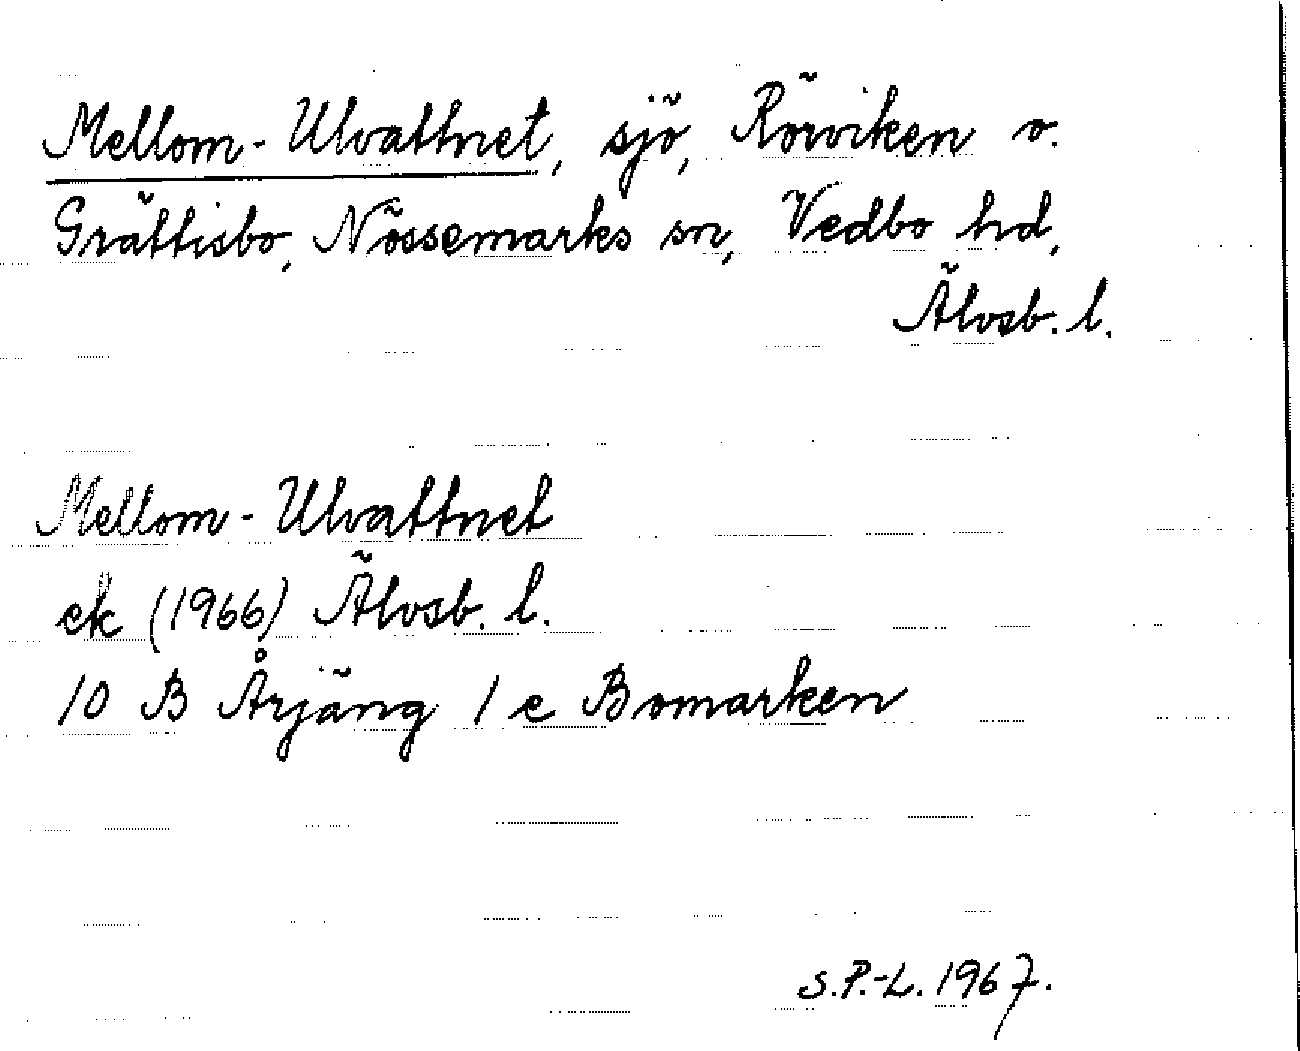 Mellom-Ulvattnet, sjö, Rörviken o.
Gråttisbo, Nössemarks sn, Vedbo hd,
Älvsb. l.
Mellom-Ulvattnet
ek (1966) Älvsb. l.
10 B Årjäng 1 e Bomarken
S.P.-L. 1967.